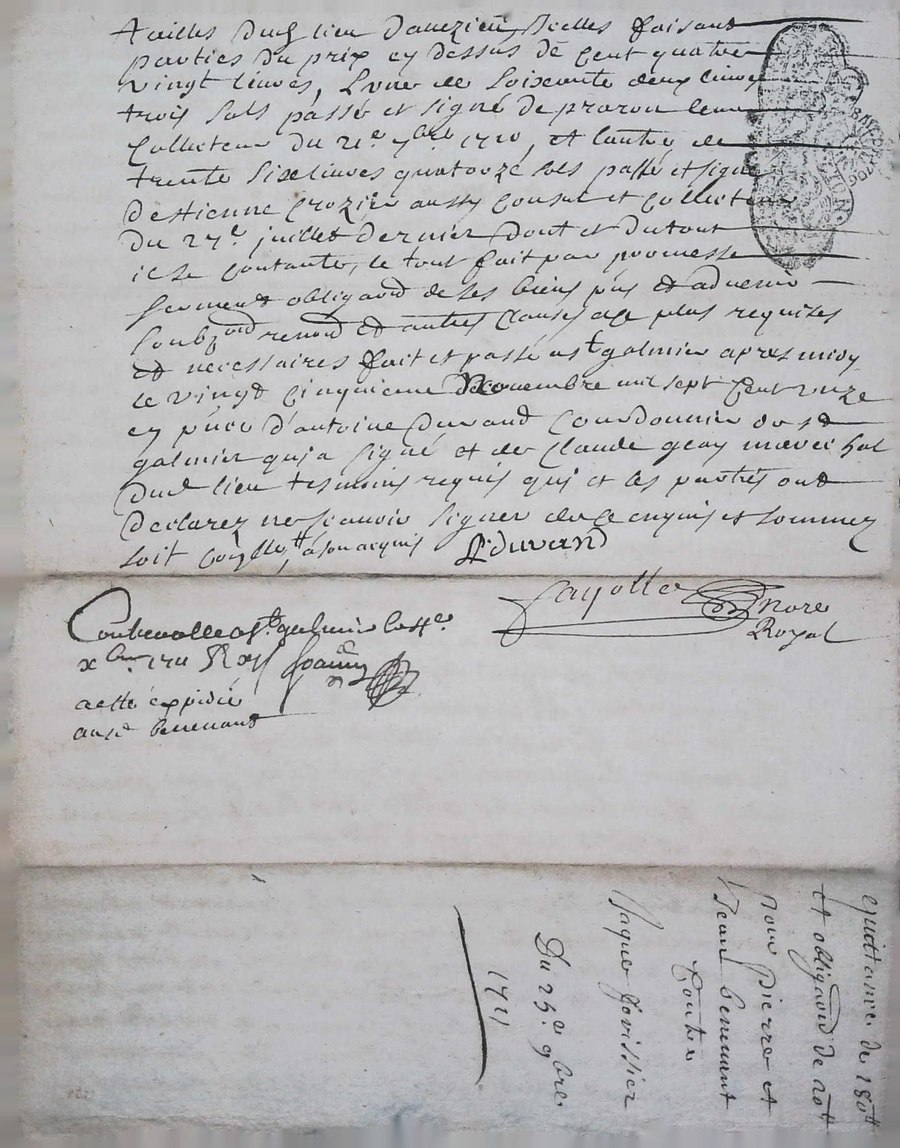 tailles dud lieu d'auezieu, Icelles faisant
parties du prix cy dessus de cent quatre
vingt liures, Lune de soixante deux liures
trois sols passé et signé de
Collecteur du 21e 7bre 1710, et lautre de
trente six liures quatorze sols passé et signé
destienne Crozier aussy Consul et collecteur
du 27e juillet dernier dont et du tout
il se contante, le tout fait par promesse
serment obligaon de ses biens pns et aduenir
soubzon renon et autres clauses plus requises
et necessaires fait et passé a st galmier apres midy
le vingt cinquieme nouembre mil sept cent unze
en pnce d'antoine durand Courdonnier de st
galmier quja signé et de Claude geay marechal
dud lieu tesmoins requis quj et les parties ont
declarez ne scauoir signer de ce enquis et sommez
soit a son acquis Durand
fayolle Nore
Royal
Controlle a st galmier le
xbre 1711 R
a esté expedié
aud benenant
quittance de 180tt
et obligaon de 20tt
pour pierre et
Jean benenant
Contre
Jaque fovissier
Du 25e 9bre
1711